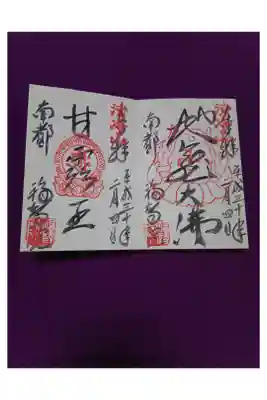 奉拝
平成三十年
二月四日
地蔵大佛
南都
福智院
奉拝
平成三十年
二月四日
甘露王
南都
福智院